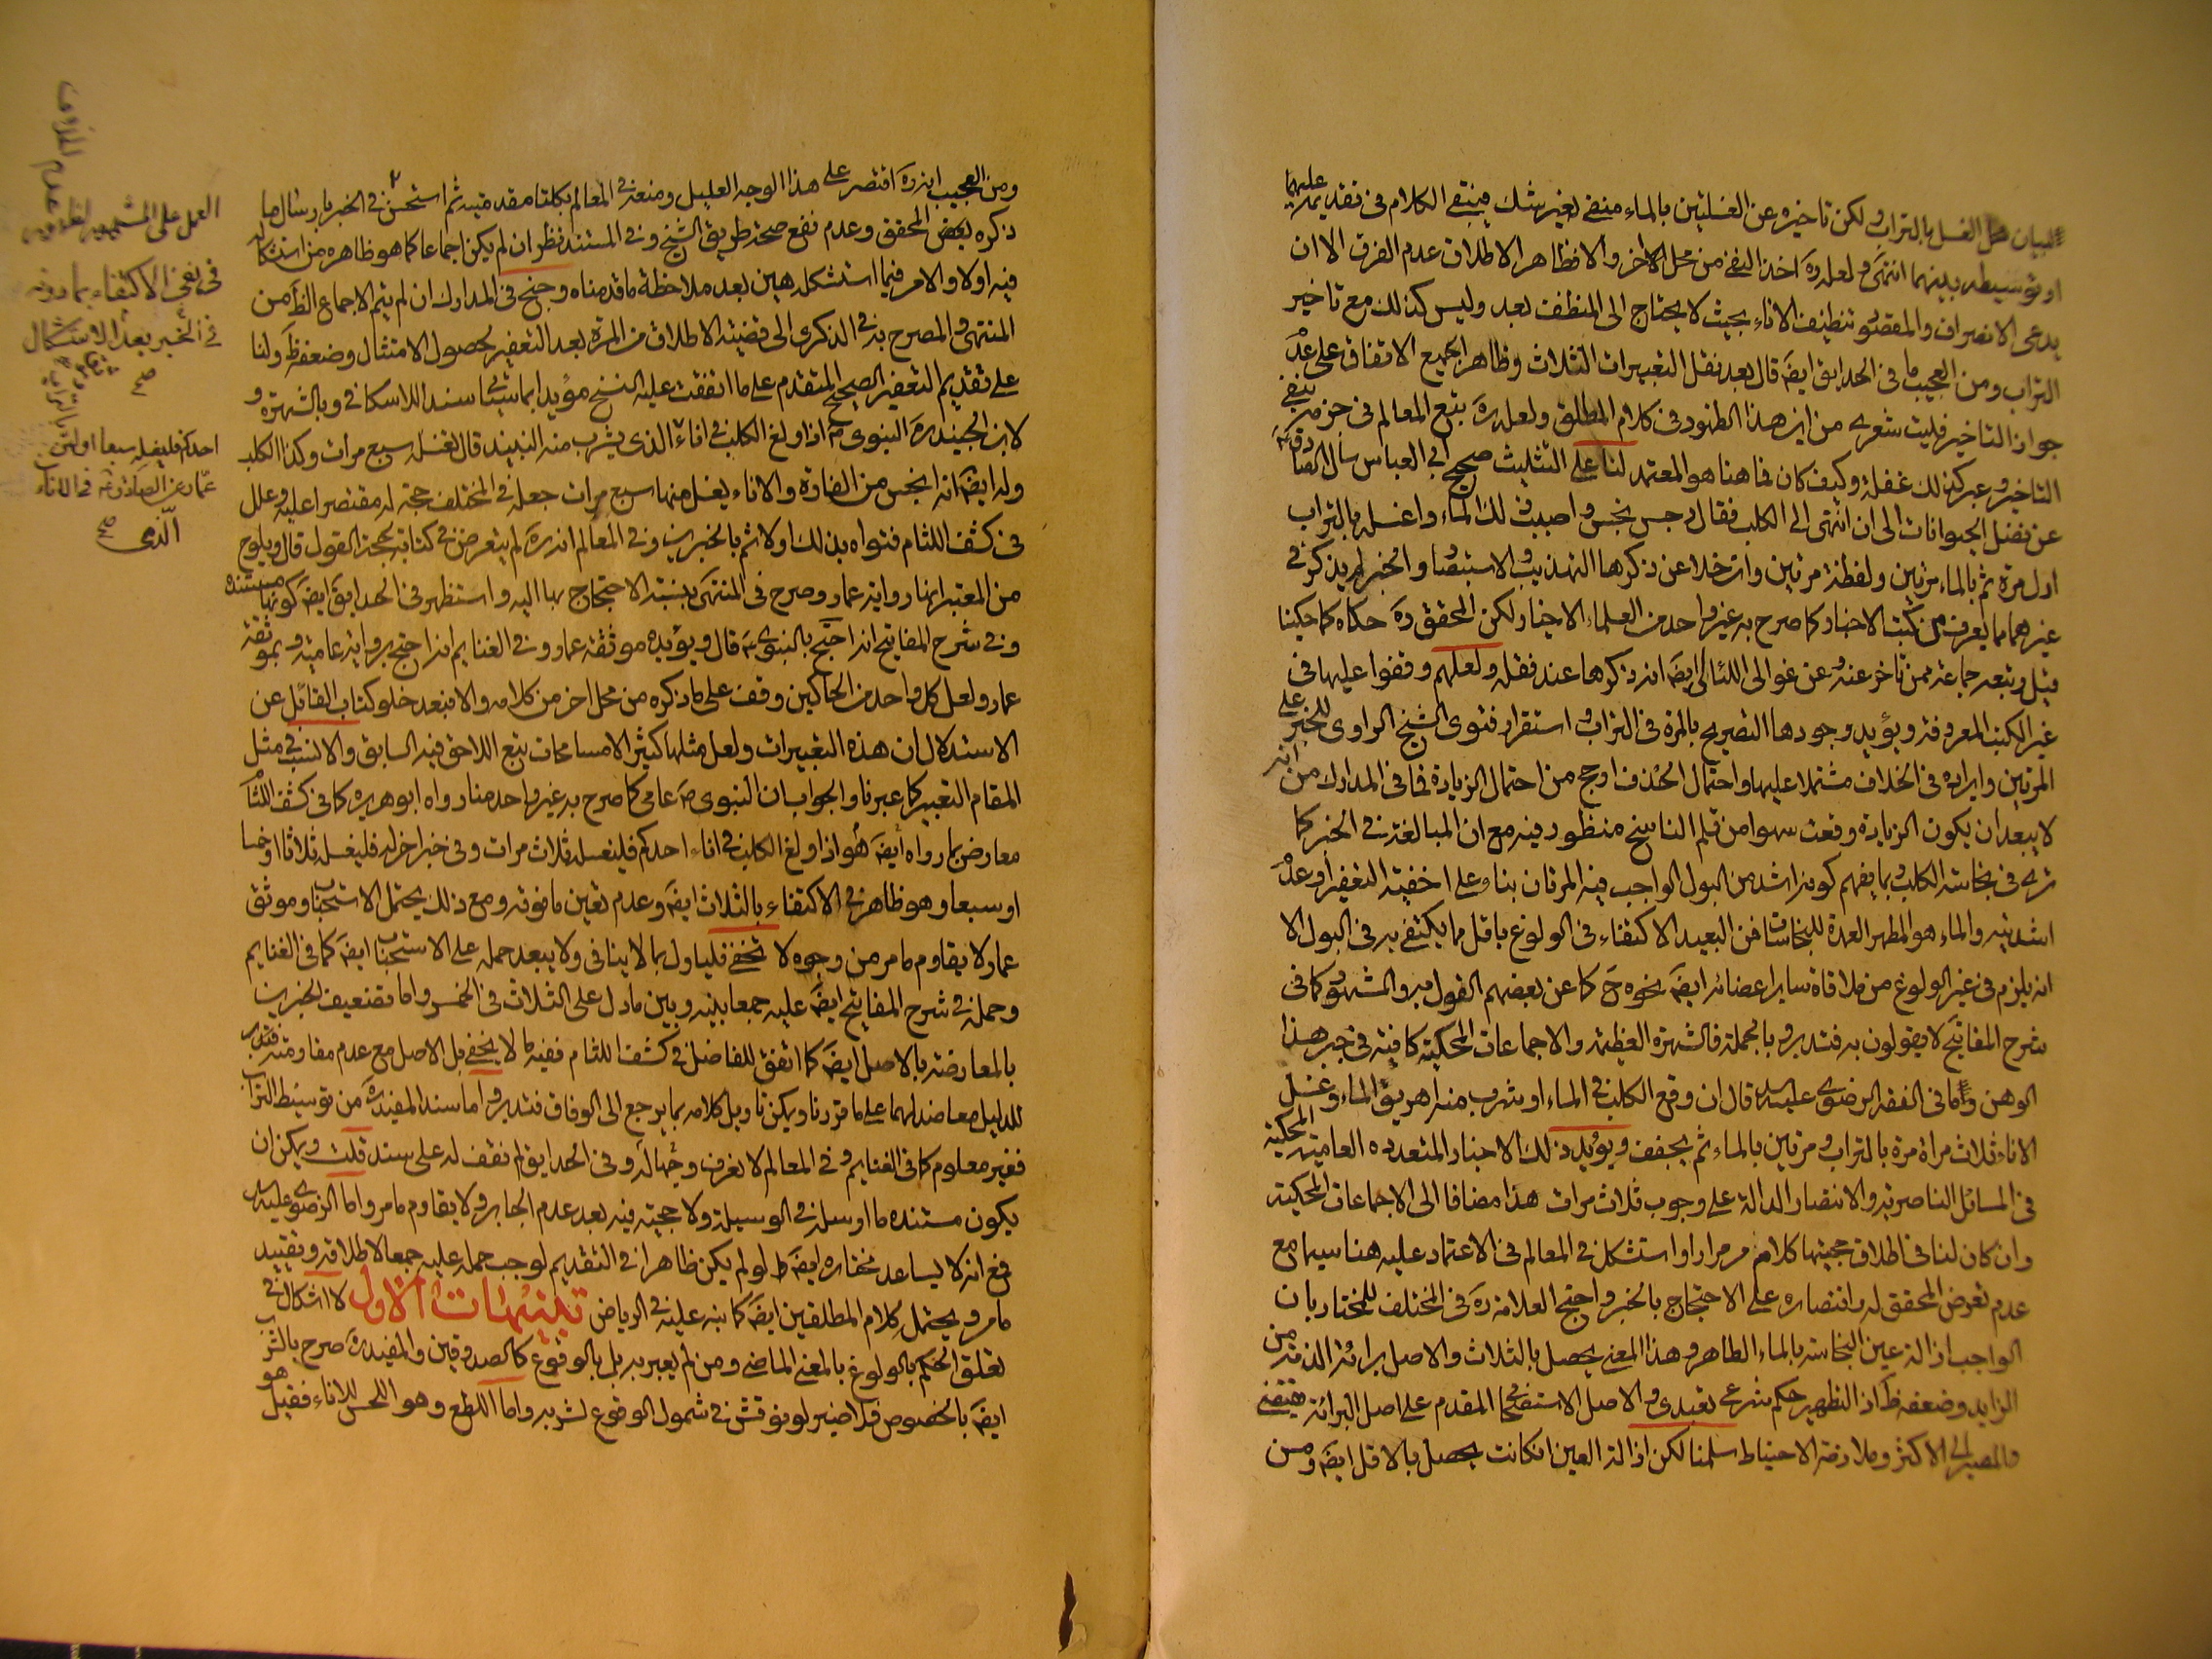 لبيان محل الغسل بالتراب ولكن تاخيره عن الغسلتين بالماء منفى بغير شك فيبقى الكلام فى تقديمه عليهما
او توسيطه بينهما انتهى ولعله ره اخذ النفى من محل الاخر والا فظاهر الاطلاق عدم الفرق الا ان
يدعى الانصراف والمقصود تنظيف الاناء بحيث لا يحتاج الى المنظف بعد وليس كذلك مع تاخير
التراب ومن العجيب ما فى الحدايق ايضا قال بعد نقل التعبيرات الثلاث وظاهر الجميع الاتفاق على عدم
جواز التاخير فليت شعرى من اين هذا الظهور فى كلام المطلق ولعله ره تبع المعالم فى جزمه بنفى
التاخير وعبر كذلك غفلة وكيف كان فما هنا هو المعتمد لنا على التثليث صحيح ابى العباس سأل الصادق ع
عن فضل الحيوانات الى ان انتهى الى الكلب فقال رجس نجس واصبب ذلك الماء واغسله بالتراب
اول مرة ثم بالماء مرتين ولفظة مرتين وان خلا عن ذكرها التهذيب والاستبصار والخبر لم يذكر فى
غيرهما مما يعرف من كتب الاخبار كما صرح به غير واحد من العلماء الاخيار ولكن المحقق ره حكاه كما حكينا
قبل وتبعه جماعة ممن تاخر عنه وعن غوالى اللئالى ايضا انه ذكرها عند نقله ولعلهم وقفوا عليها فى
غير الكتب المعروفة ويؤيد وجودها التصريح بالمرة فى التراب واستقرار فتوى الشيخ الراوى للخبر على
المرتين وايراده فى الخلاف مشتملا عليها واحتمال الحذف ارجح من احتمال الزيادة فما فى المدارك من انه
لا يبعد ان يكون الزيادة وقعت سهوا من قلم الناسخ منظور فيه مع ان المبالغة فى الخبر كما
ترى فى نجاسة الكلب وبما يفهم كونه اشد من البول الواجب فيه المرتان بناء على اخفية التعفير او عدم
اشديته والماء هو المطهر العمدة للنجاسات فمن البعيد الاكتفاء فى الولوغ باقل مما يكتفى به فى البول الا
انه يلزم فى غير الولوغ من ملاقاة ساير اعضائه ايضا نحوه ح كما عن بعضهم القول به والمشهور كما فى
شرح المفاتيح لا يقولون به فتدبر وبالجملة فالشهرة العظيمة والاجماعات المحكية كافية فى جبر هذا
الوهن واما فى الفقه الرضوى عليه السلام قال ان وقع الكلب فى الماء او شرب منه اهريق الماء وغسل
الاناء ثلاث مراة مرة بالتراب ومرتين بالماء ثم يجفف ويؤيد ذلك الاخبار المتعدده العامية المحكية
فى المسائل الناصرية والانتصار الدالة على وجوب ثلاث مرات هذا مضافا الى الاجماعات المحكية
وان كان لنا فى اطلاق حجيتها كلام مر مرارا واستشكل فى المعالم فى الاعتماد عليه هنا سيما مع
عدم تعرض المحقق له واقتصاره على الاحتجاج بالخبر واحتج العلامة ره فى المختلف للمختار بان
الواجب ازالة عين النجاسة بالماء الطاهر وهذا المعنى يحصل بالثلاث والاصل برائة الذمة من
الزايد وضعفه ظ اذ التطهير حكم شرعى تعبدى والاصل الاستصحاب المقدم على اصل البرائة مقتضى
فالمصير الى الاكثر وملازمة الاحتياط سلمنا لكن ازالة العين ان كانت يحصل بالاقل ايضا ومن
ومن العجيب انه ره اقتصر على هذا الوجه العليل ومنعه فى المعالم بكلتا مقدمتيه ثم استحسن فى الخبر بارسال ما
ذكره بعض المحقق وعدم نفع صحة طريق الشيخ وفى المستند نظر ان لم يكن اجماعا كما هو ظاهره من استشكال
فيه اولا والامر فيما استشكله هين بعد ملاحظة ما قدمناه وجنح فى المدارك ان لم يتم الاجماع الظ من
المنتهى والمصرح به فى الذكرى الى قضية الاطلاق من المرة بعد التعفير لحصول الامتثال وضعفه ظ ولنا
على تقديم التعفير الصحيح المتقدم على ما اتفقت عليه النسخ مؤيدا بما سيأتى سندا للاسكافى وبالشهرة و
لابن الجنيد ره النبوى ص اذا ولغ الكلب فى اناء الذى يشرب منه النبيذ قال تغسله سبع مرات وكذا الكلب
وله ايضا انه انجس من الفارة والاناء يغسل منها سبع مرات جعله فى المختلف حجة له مقتصرا عليه وعلل
فى كشف اللثام فتواه بذلك اولا ثم بالخبرين وفى المعالم انه ره لم يتعرض فى كتابه لحجة القول قال ويلوح
من المعتبر انها رواية عمار وصرح فى المنتهى بنسبة الاحتجاج بها اليه واستظهر فى الحدايق ايضا كونها مستنده
وفى شرح المفاتيح انه احتج بالنبوى ص قال ويؤيده موثقة عمار وفى الغنايم انه احتج برواية عامية وبموثقة
عمار ولعل كل واحد من الحاكين وقف على ما ذكره من محل اخر من كلامه والا فبعد خلو كتاب القائل عن
الاستدلال ان هذه التعبيرات ولعل مثلها كثير الا مسامحات تبع اللاحق فيه السابق والانسب فى مثل
المقام التعبير كما عبرنا والجواب ان النبوى ص عامى كما صرح به غير واحد منا رواه ابو هريره كما فى كشف اللثام
معارض بما رواه ايضا هو اذا ولغ الكلب فى اناء احدكم فليغسله ثلاث مرات وفى خبر اخر له فليغسله ثلاثا او خمسا
او سبعا وهو ظاهر فى الاكتفاء بالثلاث ايضا وعدم تعين ما فوقه ومع ذلك يحتمل الاستحباب وموثق
عمار لا يقاوم ما مر من وجوه لا تخفى فليأول بما لا ينافى ولا يبعد حمله على الاستحباب ايضا كما فى الغنايم
وحمله فى شرح المفاتيح ايضا عليه جمعا بينه وبين ما دل على الثلاث فى الخمر واما تضعيف الخبرين
بالمعارضة بالاصل ايضا كما اتفق للفاضل فى كشف اللثام ففيه ما لا يخفى بل الاصل مع عدم مقاومته فتدبر
للدليل معاضد لهما على ما قررنا ويمكن تاويل كلامه بما يرجع الى الوفاق فتدبر واما سند المفيد ره من توسيط التراب
فغير معلوم كما فى الغنايم وفى المعالم لا نعرف وجها له وفى الحدايق لم نقف له على سند قلت ويمكن ان
يكون مستنده ما ارسله فى الوسيلة ولا حجية فيه بعد عدم الجابر ولا يقاوم ما مر واما الرضوى عليه السلام
فمع انه لا يساعد مختاره ايضا ظ لو لم يكن ظاهرا فى التقديم لوجب حمله عليه جمعا لاطلاقه وتقييد
ما مر ويحتمل كلام المطلقين ايضا كما نبه عليه فى الرياض تنبيهات الاول لا اشكال فى
تعلق الحكم بالولوغ بالمعنى الماضى ومن لم يعبر به بل بالوقوع كالصدوقين والمفيد ره صرح بالشرب
ايضا بالخصوص فلا ضير لو نوقش فى شمول الوقوع لشربه واما اللطع وهو اللحس للاناء فقيل هو
العمل على المشهور
فى نفى الاكتفاء بما دونه
فى الخبر بعد الاستشكال
صح
احدكم فليغسله سبعا اولهن بالتراب وموثق
عمار عن الصادق ع فى الاناء
الذى صح